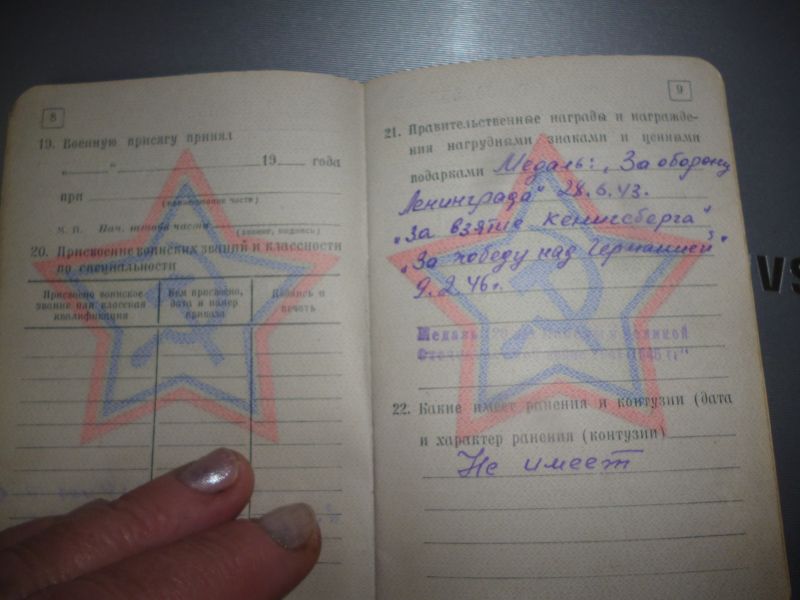 8
19. Военную присягу принял
„ “ 19 года
при
(наименование части)
М. П. Нач. штаба части
(звание, подпись)
20. Присвоение воинских званий и классности
по специальности
Присвоено воинское
звание или классная
квалификация
Кем присвоено,
дата и номер
приказа
Подпись и
печать
9
21. Правительственные награды и награжде-
ния нагрудными знаками и ценными
подарками Медаль: „За оборону
Ленинграда" 28.6.43.
„За взятие кенигсберга"
„За победу над Германией".
9.2.46.
Медаль "20
22. Какие имеет ранения и контузии (дата
и характер ранения (контузии)
Не имеет
VS